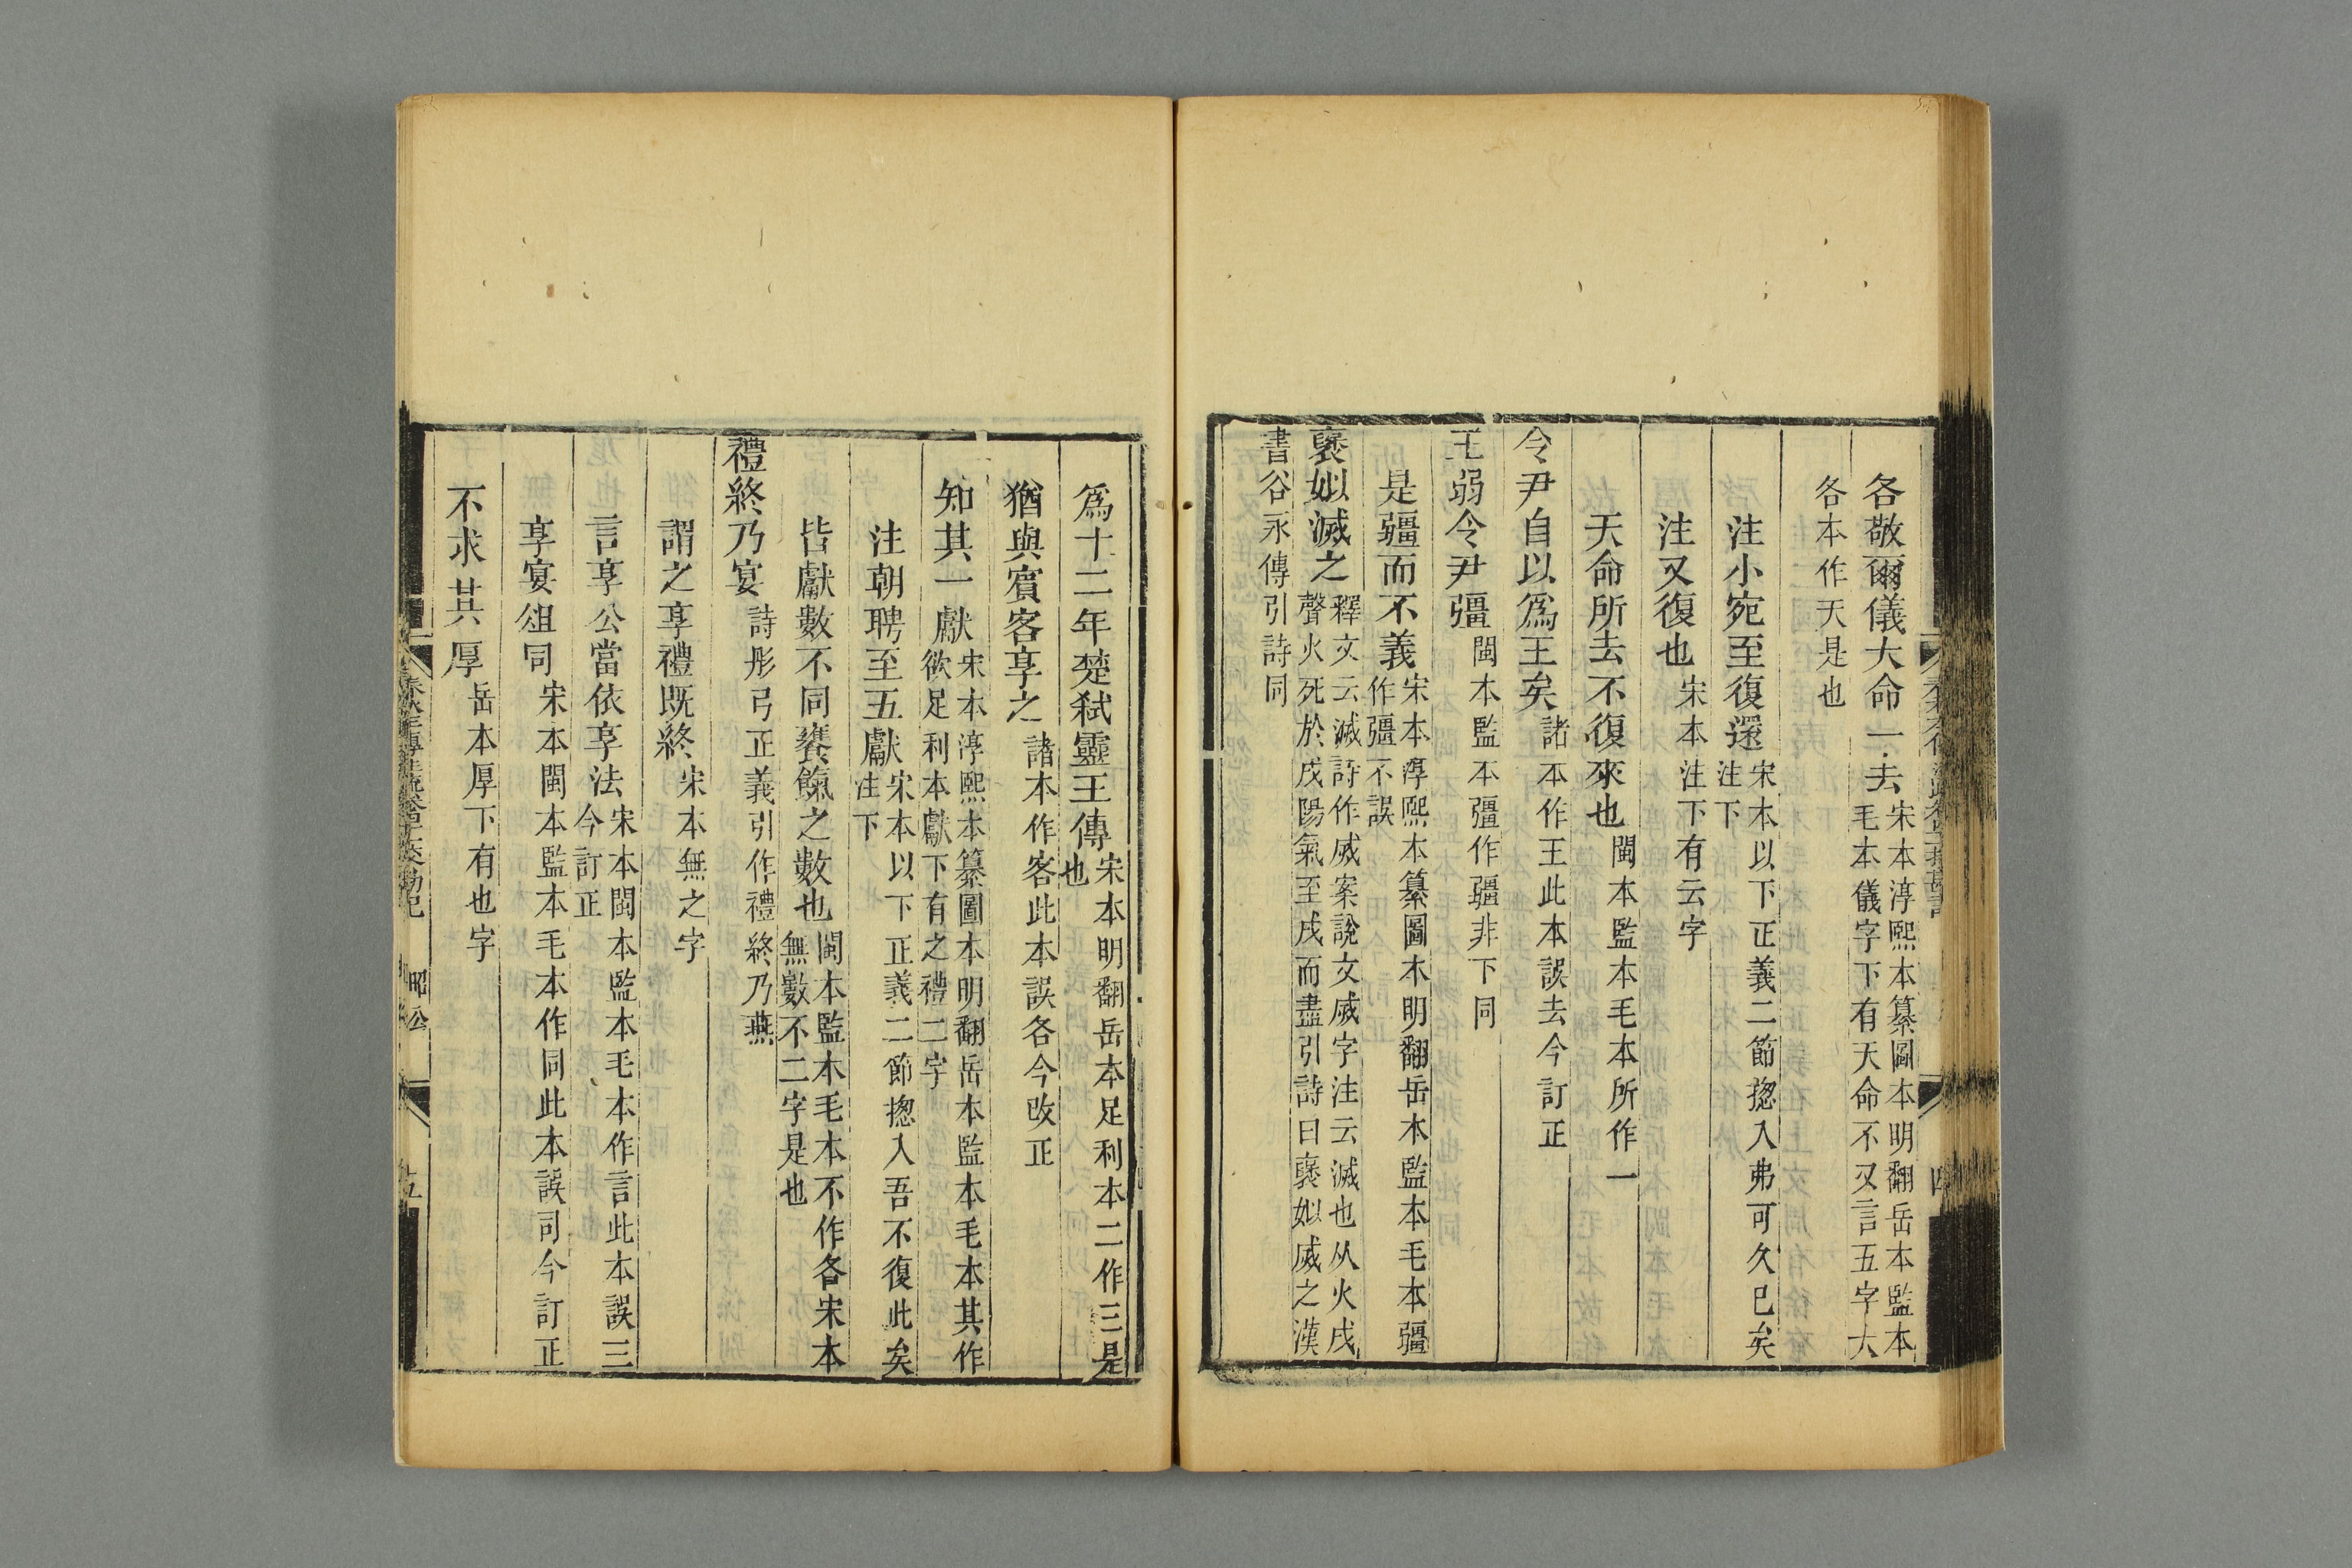 各敬爾儀大命一去宋本淳熙本纂圖本明翻岳本監本毛本儀字下有天命不又言五字大
各本作天是也
注小宛至復還宋本以下正義二節揔入弗可久已矣注下
注又復也宋本注下有云字
天命所去不復來也閩本監本毛本所作一
令尹自以爲王矣諸本作王此本誤去今訂正
王弱令尹彊閩本監本彊作疆非下同
是彊而不義宋本淳熙本纂圖本明翻岳本監本毛本彊作彊不誤
襃姒滅之釋文云滅詩作烕案說文烕字注云滅也从火戌聲火死於戌陽氣至戌而盡引詩曰襃姒烕之漢
書谷永傳引詩同
爲十二年楚弒靈王傳宋本明翻岳本足利本二作三是也
猶與賓客享之諸本作客此本誤各今改正
知其一獻宋本淳熙本纂圖本明翻岳本監本毛本其作欲足利本獻下有之禮二字
注朝聘至五獻宋本以下正義二節揔入吾不復此矣注下
皆獻數不同饔餼之數也閩本監本毛本不作各宋本無數不二字是也
禮終乃宴詩彤弓正義引作禮終乃燕
謂之享禮既終宋本無之字
言享公當依享法宋本閩本監本毛本作言此本誤三今訂正
享宴俎同宋本閩本監本毛本作同此本誤司今訂正
不求其厚岳本厚下有也字
昭公
五